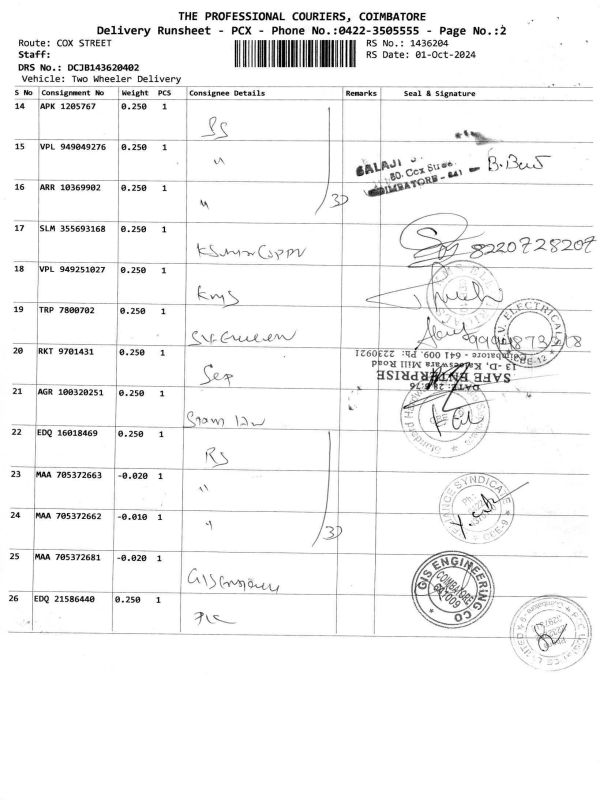 THE PROFESSIONAL COURIERS, COIMBATORE
Delivery Runsheet - PCX - Phone No.:0422-3505555 - Page No.:2
Route: COX STREET RS No.: 1436204
Staff: RS Date: 01-Oct-2024
DRS No.: DCJB143620402
Vehicle: Two Wheeler Delivery
S No Consignment No Weight PCS Consignee Details Remarks Seal & Signature
14 APK 1205767 0.250 1
15 VPL 949049276 0.250 1 "
BALAJI
80. Cox Street
COIMBATORE - 641
16 ARR 10369902 0.250 1 "
17 SLM 355693168 0.250 1 8220728207
18 VPL 949251027 0.250 1 KMS
19 TRP 7800702 0.250 1
V. ELECTRICALS
CBE-12
20 RKT 9701431 0.250 1
SAFE ENTERPRISE
13 -D, Kamaleswara Mill Road
Coimbatore - 641 009. Ph: 2230921
21 AGR 100320251 0.250 1
22 EDQ 16018469 0.250 1 RS
23 MAA 705372663 -0.020 1 "
SYNDICATE
CBE-9
24 MAA 705372662 -0.010 1 "
25 MAA 705372681 -0.020 1
GIS ENGINEERING CO
COIMBATORE
641009
26 EDQ 21586440 0.250 1 PLC